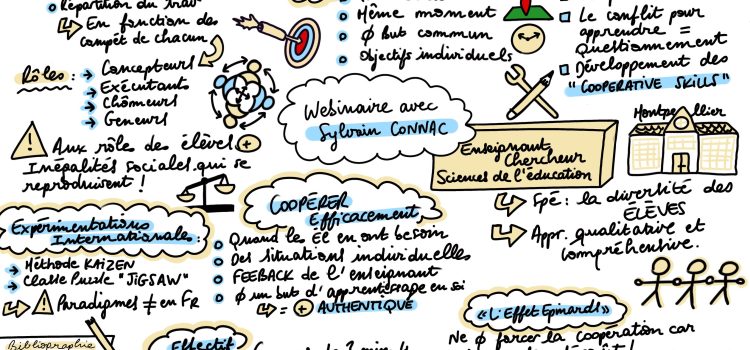 Répartition du
En fonction des
compét de chacun
Rôles : → Concepteurs
→ Exécutants
→ Chômeurs
→ Gêneurs
Aux rôles des élèves +
Inégalités sociales qui se
reproduisent !
Même moment
Ø But commun
Objectifs individuels
Le conflit pour
apprendre =
Questionnement
Développement des
"COOPERATIVE SKILLS"
Webinaire avec
Sylvain CONNAC
Enseignant
Chercheur
Sciences de l'éducation
Montpellier
Spé : la diversité des
ÉLÈVES
Appr. qualitative et
compréhensive.
Expérimentations
Internationales :
→ Méthode KAIZEN
→ Classe Puzzle "JiGSAW"
Paradigmes ≠ en FR
COOPÉRER
Efficacement
Quand les El en ont besoin
Des situations individuelles
FEEBACK de l'enseignant
Ø un but d'apprentissage en soi
= + AUTHENTIQUE
«L'Effet Epinards»
Ne Ø forcer la coopération car
Bibliographie
Effectif